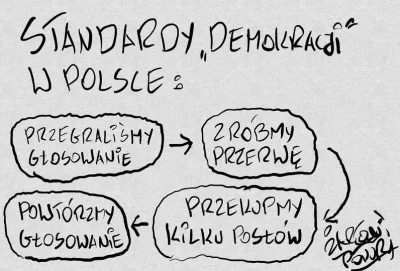 STANDARDY „DEMOKRACJI”
W POLSCE:
PRZEGRALIŚMY
GŁOSOWANIE
ZRÓBMY
PRZERWĘ
PRZEKUPMY
KILKU POSŁÓW
POWTÓRZMY
GŁOSOWANIE